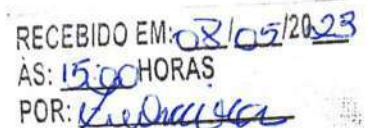 RECEBIDO EM: 08/05/2023
ÀS: 15:00 HORAS
POR: